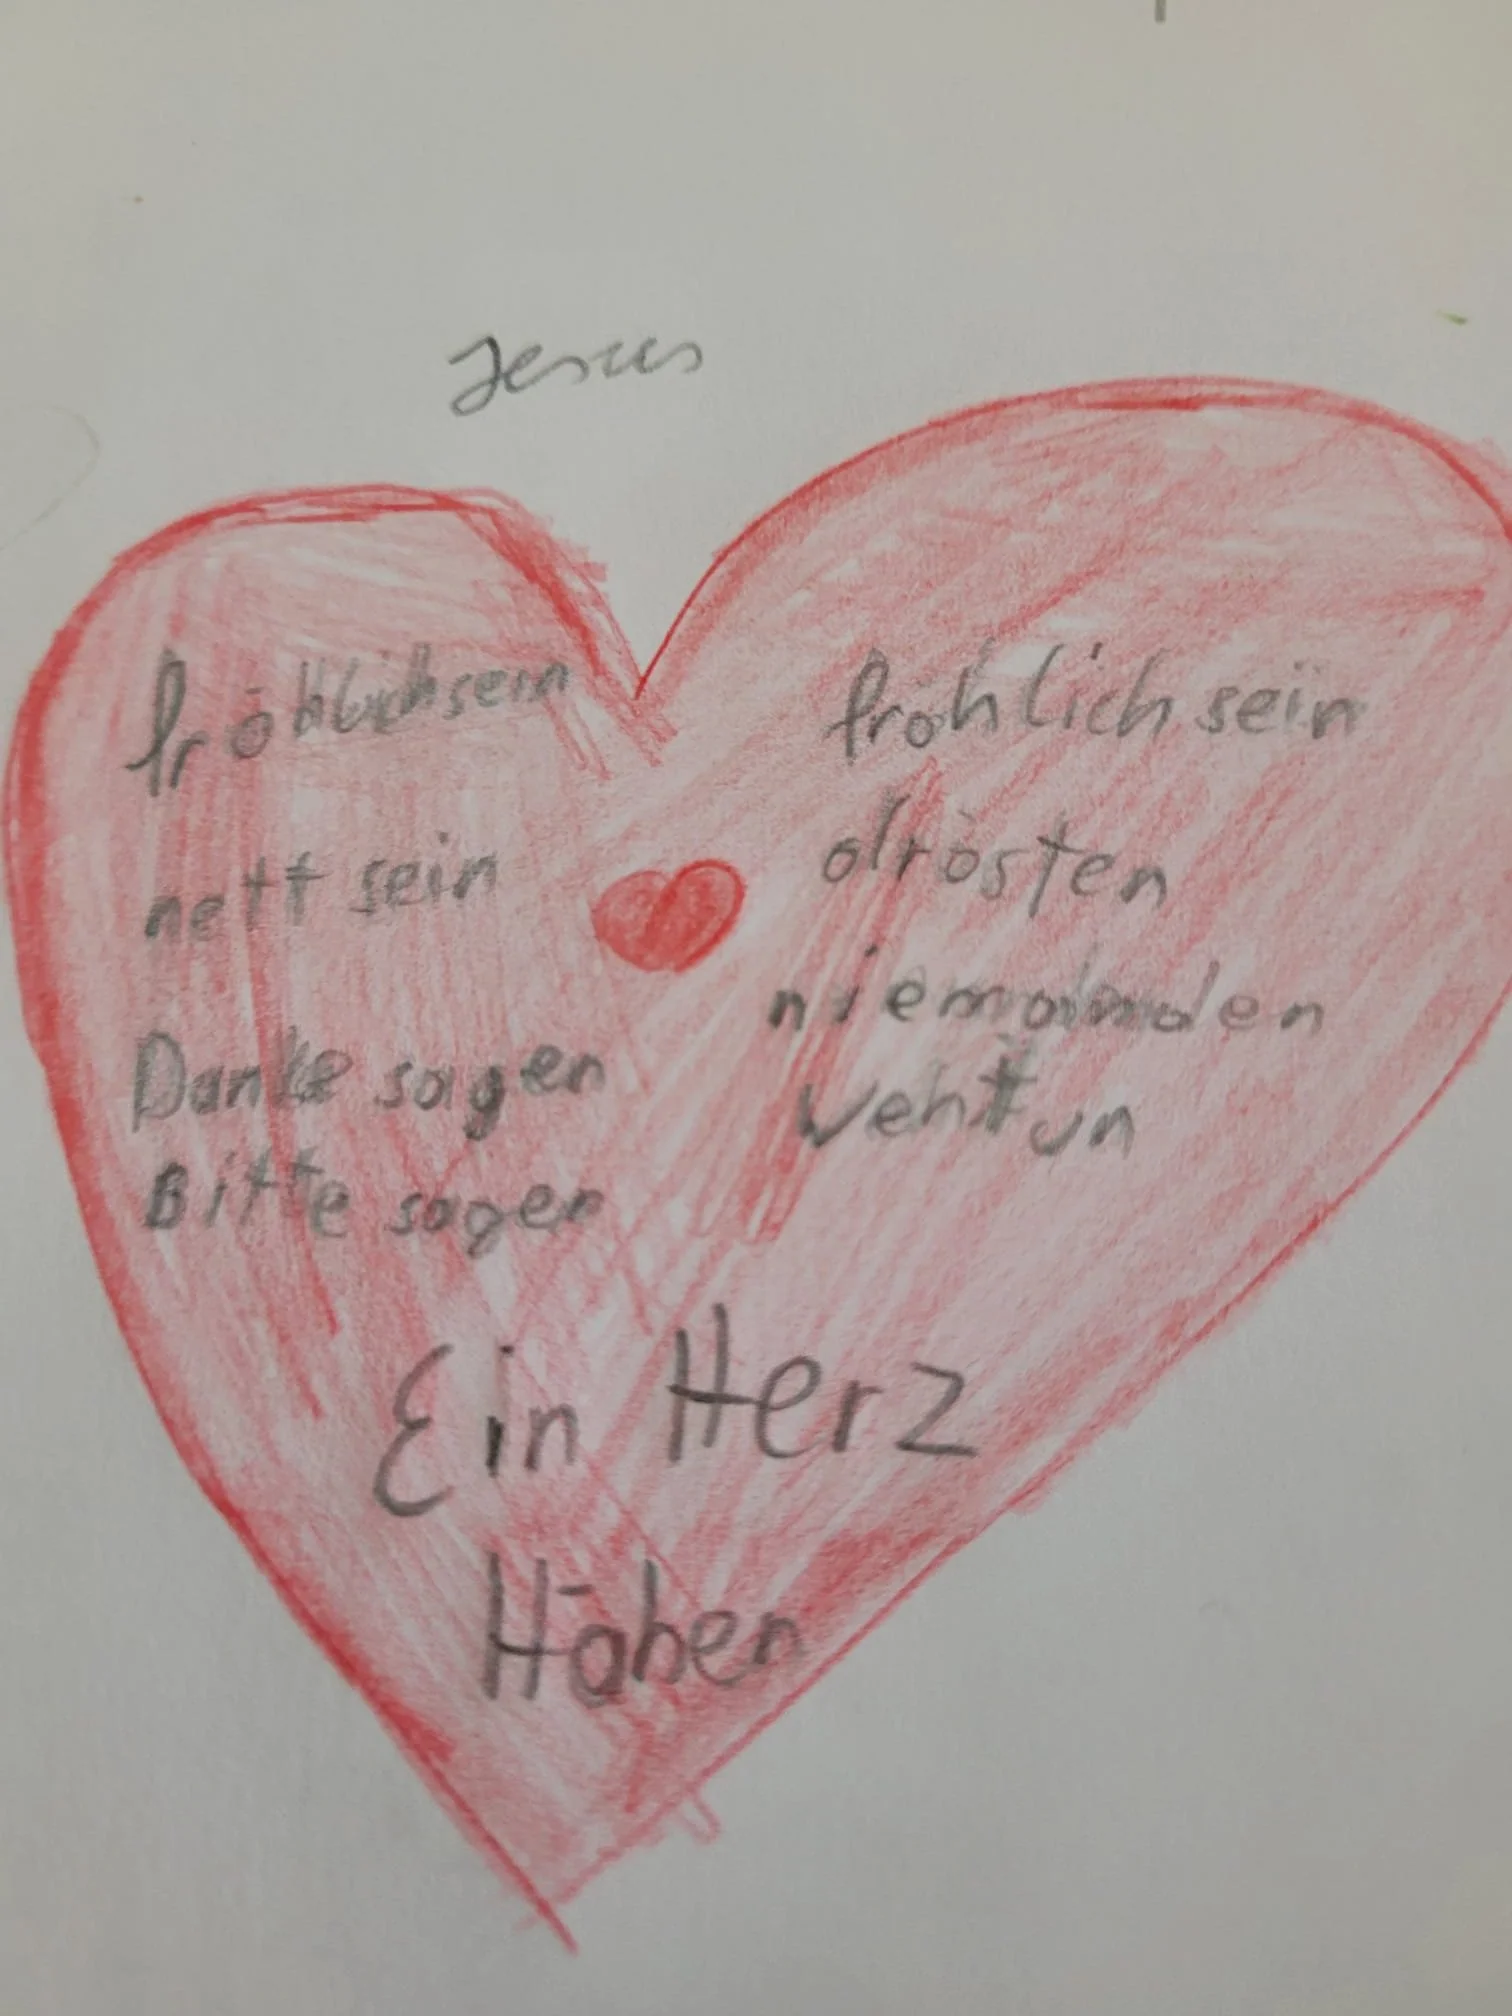 Jesus
fröhlich sein
nett sein
Danke sagen
Bitte sagen
fröhlich sein
drösten
niemanden
Wehtun
Ein Herz
Haben